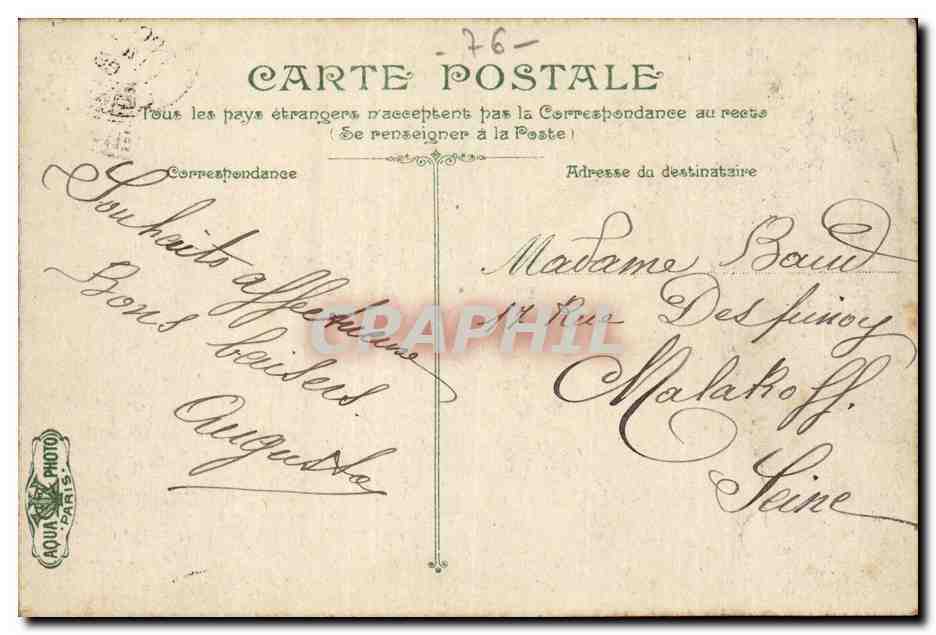 - 76 -
CARTE POSTALE
Tous les pays étrangers n'acceptent pas la Correspondance au recto
(Se renseigner à la Poste)
Correspondance
Souhaits affectueux
Bons baisers
Augusta
Adresse du destinataire
Madame Baud
17 Rue Desfunoy
Malakoff.
Seine
CPAPHIL
AQUA PHOTO
PARIS